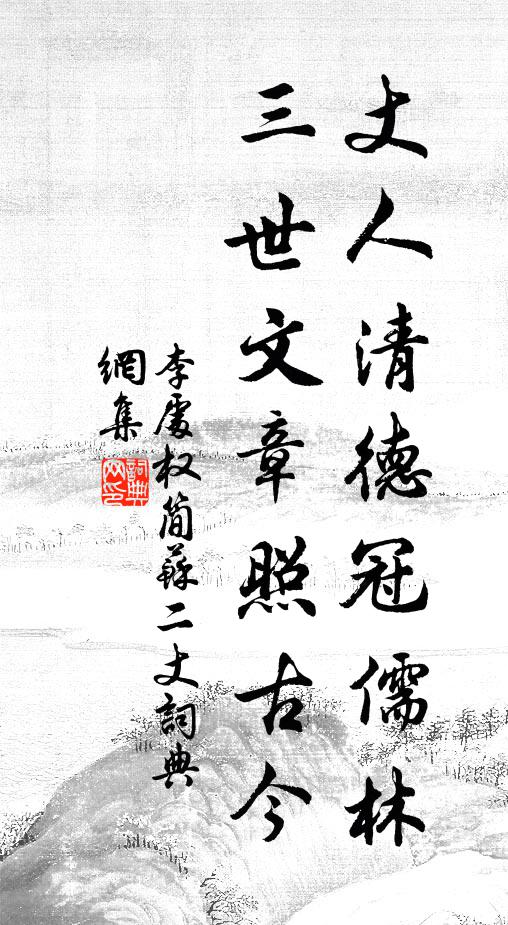 丈人清德冠儒林
三世文章照古今
李處权簡蘇二丈詞典
網集
詞典
网印